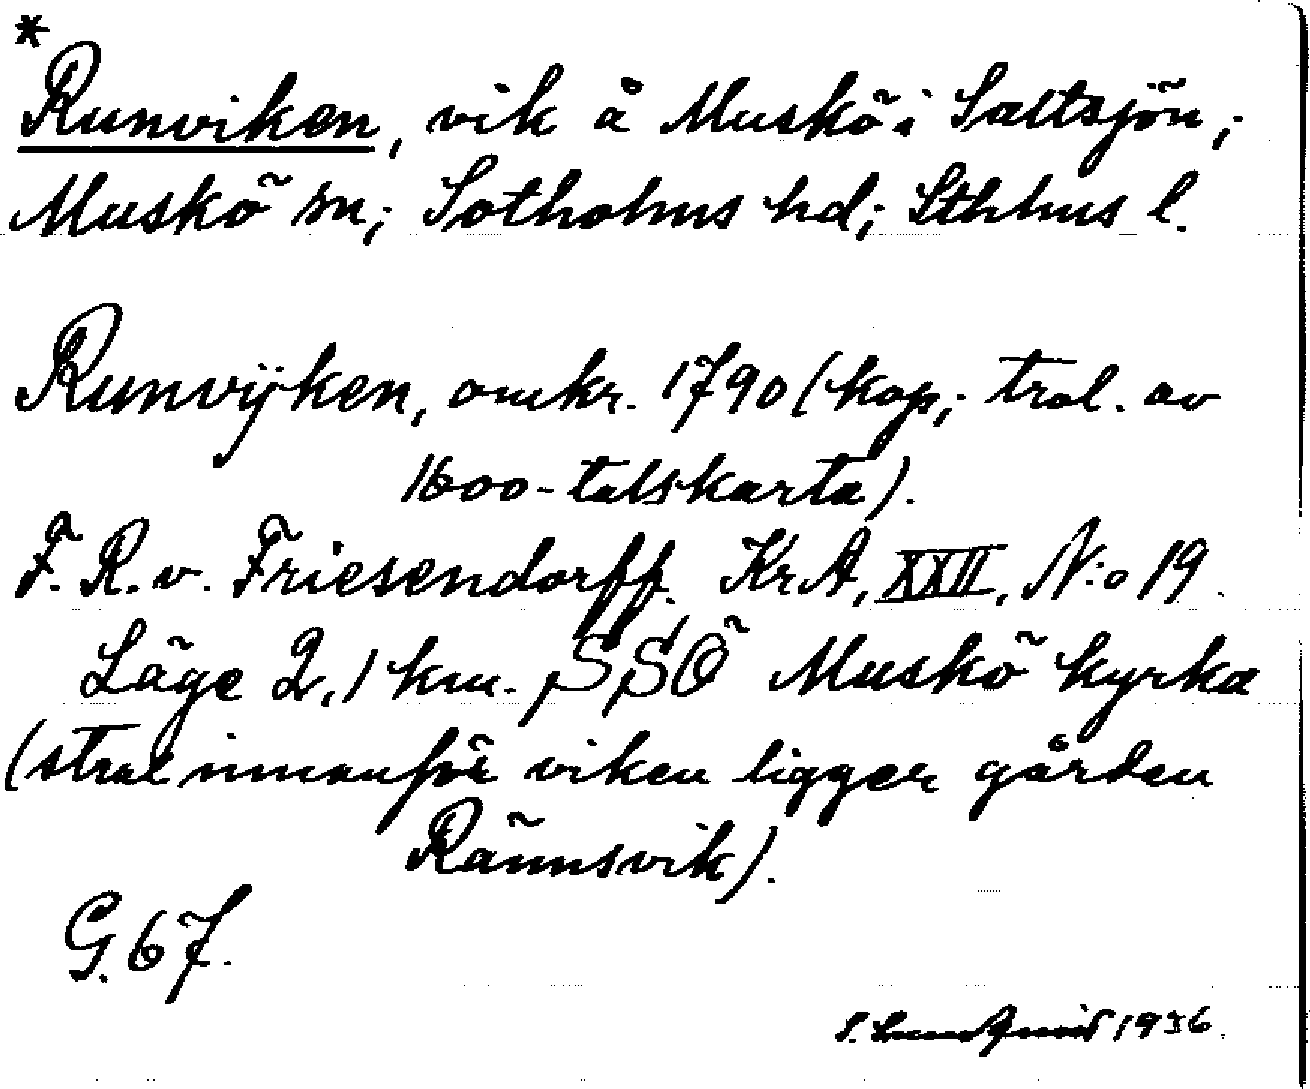 *
Runviken, vik å Muskö i Saltsjön;
Muskö sn; Sotholms hd; Sthlms l.
Runvijken, omkr. 1790 (kop; trol. av
1600-talskarta).
F. R. v. Friesendorff. KrA, XXII, N:o 19.
Läge 2,1 km. SSÖ Muskö kyrka
(strax innanför viken ligger gården
Rännsvik).
G. 67.
S. Lundqvist 1936.